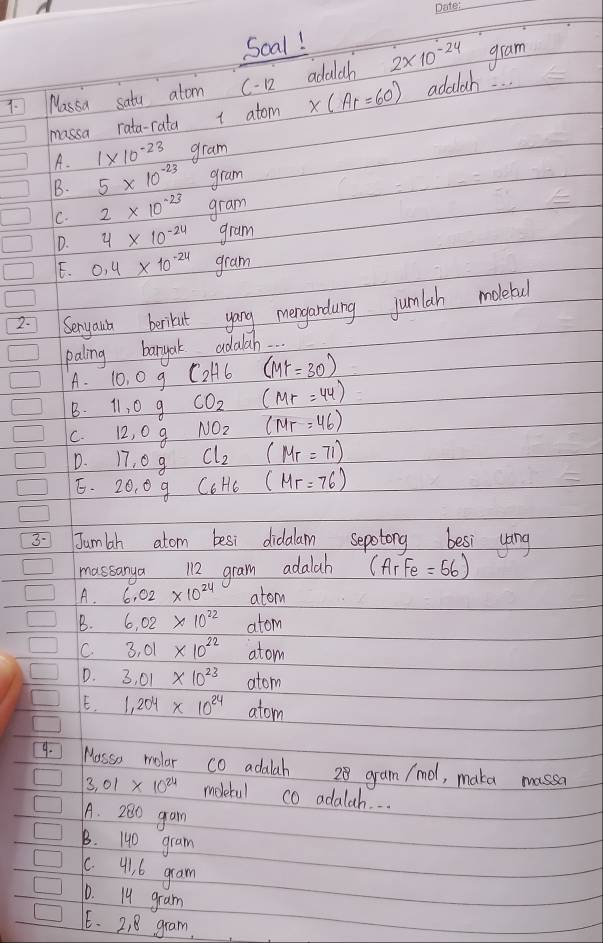 Date:
Soal!
1. Massa satu atom C-12 adalah 2×10⁻²⁴ gram
massa rata-rata 1 atom X (Ar=60) adalah ...
A. 1×10⁻²³ gram
B. 5 × 10⁻²³ gram
C. 2 × 10⁻²³ gram
D. 4 × 10⁻²⁴ gram
E. 0,4 × 10⁻²⁴ gram
2. Senyawa berikut yang mengandung jumlah molekul
paling banyak adalah ...
A. 10,0 g C2H6 (Mr = 30)
B. 11,0 g CO2 (Mr = 44)
C. 12,0 g NO2 (Mr = 46)
D. 17,0 g Cl2 (Mr = 71)
E. 20,0 g C6H6 (Mr = 76)
3. Jumlah atom besi didalam sepotong besi yang
massanya 112 gram adalah (Ar Fe = 56)
A. 6,02 × 10²⁴ atom
B. 6,02 × 10²² atom
C. 3,01 × 10²² atom
D. 3,01 × 10²³ atom
E. 1,204 × 10²⁴ atom
4. Massa molar CO adalah 28 gram/mol, maka massa
3,01 × 10²⁴ molekul CO adalah...
A. 280 gram
B. 140 gram
C. 41,6 gram
D. 14 gram
E. 2,8 gram